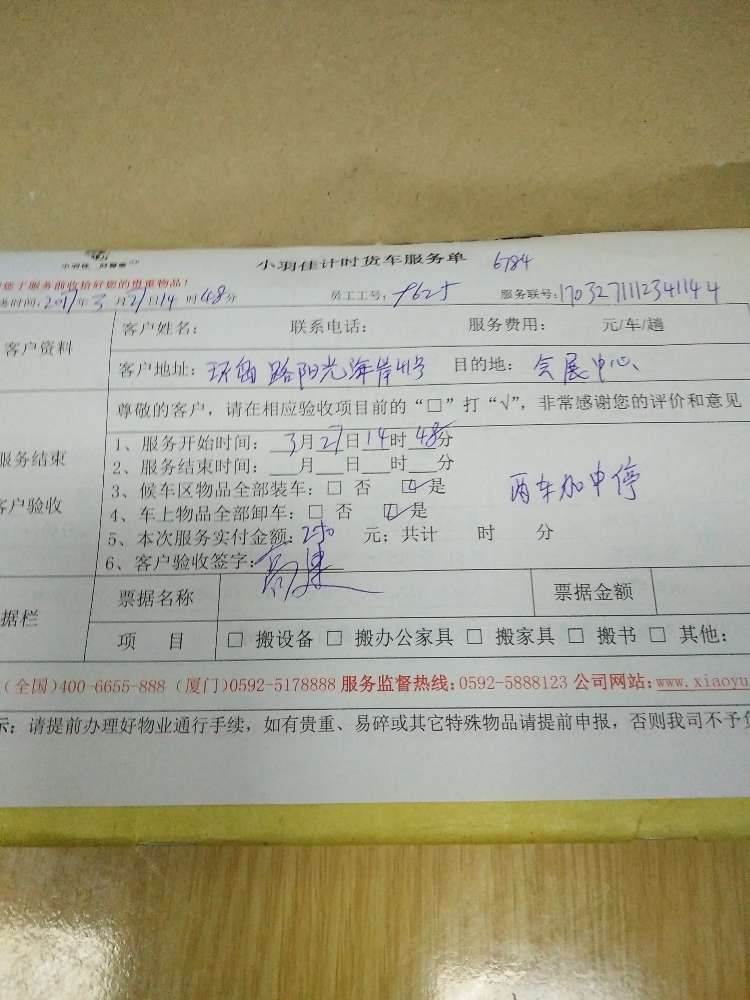 小羽佳 好管家
小羽佳计时货车服务单 6784
您于服务前收拾好您的贵重物品!
务时间:2017年3月27日14时48分 员工工号:9625 服务联号:1703271112341144
客户资料
客户姓名: 联系电话: 服务费用: 元/车/趟
客户地址:环岛路阳光海岸41号 目的地:会展中心
服务结束
客户验收
尊敬的客户,请在相应验收项目前的“□”打“√”,非常感谢您的评价和意见
1、服务开始时间:3月27日14时48分
2、服务结束时间:___月___日___时___分
3、候车区物品全部装车:□ 否 ☑是
4、车上物品全部卸车:□ 否 ☑是
两车加中停
5、本次服务实付金额:250 元;共计 时 分
6、客户验收签字:
据栏
票据名称 票据金额
项 目 □ 搬设备 □ 搬办公家具 □ 搬家具 □ 搬书 □ 其他:
(全国)400-6655-888 (厦门)0592-5178888 服务监督热线:0592-5888123 公司网站:www.xiaoyu
示:请提前办理好物业通行手续,如有贵重、易碎或其它特殊物品请提前申报,否则我司不予